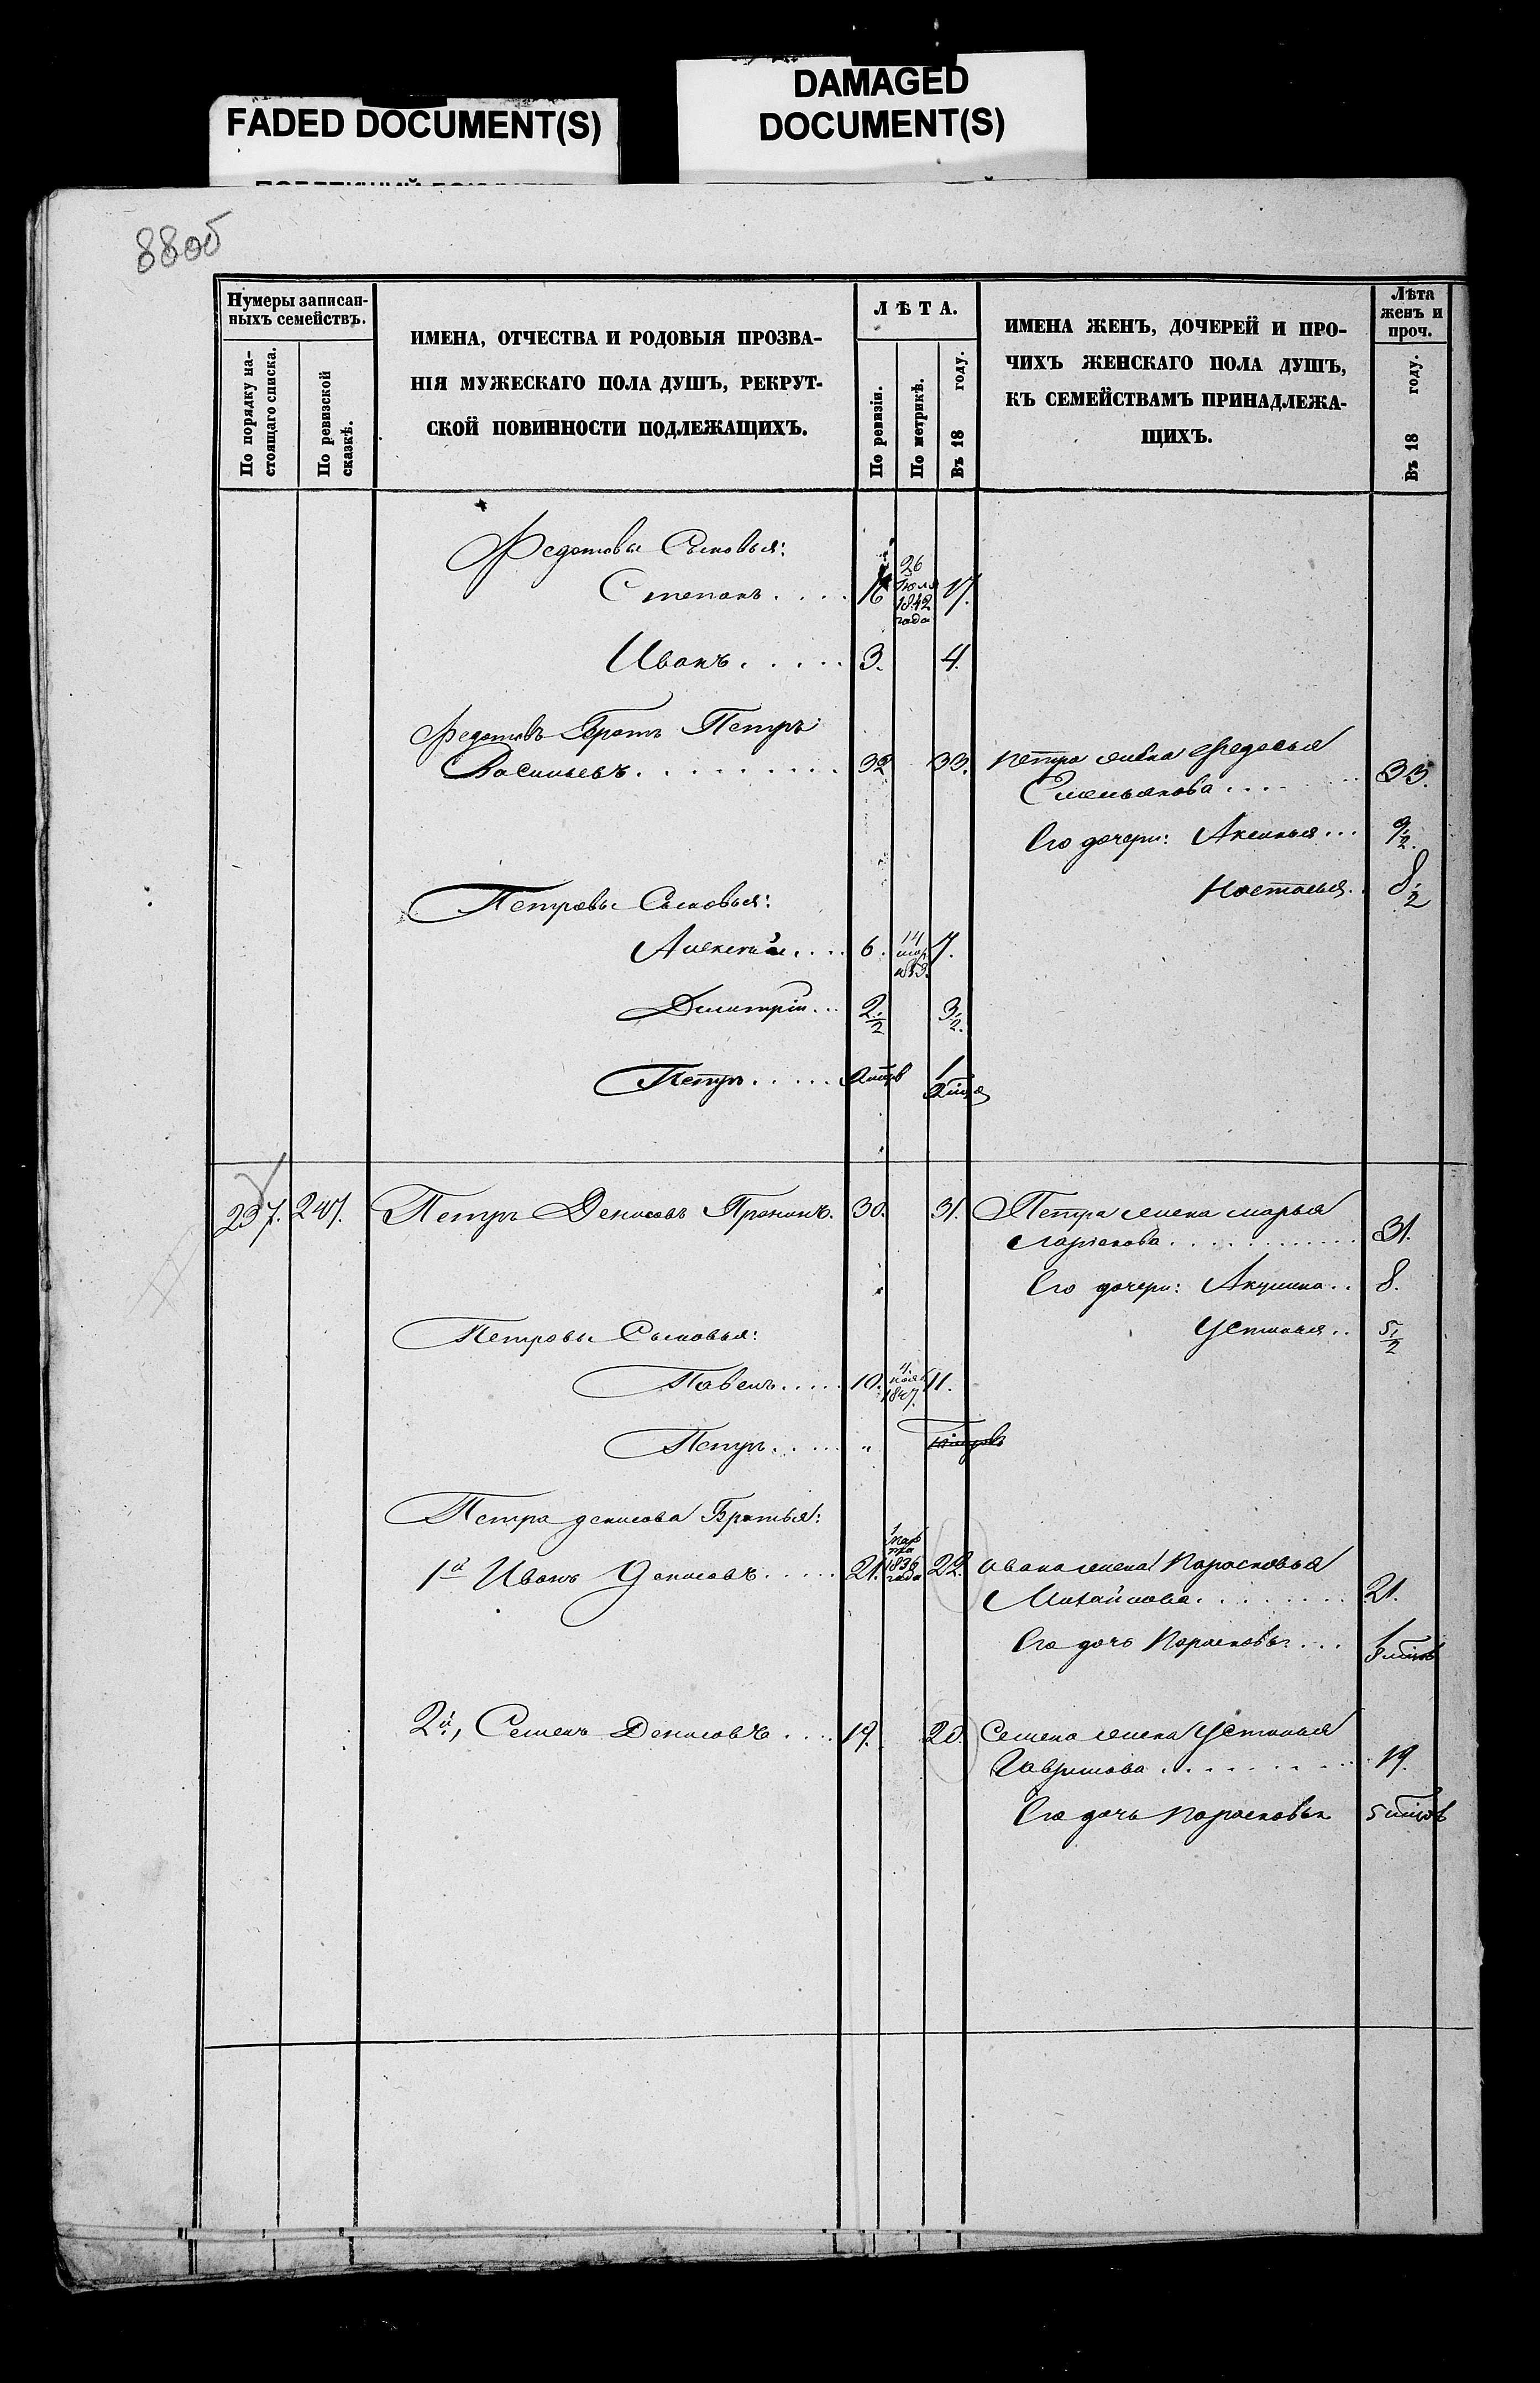 FADED DOCUMENT(S)
DAMAGED
DOCUMENT(S)
88об
Нумеры записан-
ныхъ семействъ.
По порядку на-
стоящаго списка.
По ревизской
сказкѣ.
ИМЕНА, ОТЧЕСТВА И РОДОВЫЯ ПРОЗВА-
НІЯ МУЖЕСКАГО ПОЛА ДУШЪ, РЕКРУТ-
СКОЙ ПОВИННОСТИ ПОДЛЕЖАЩИХЪ.
ЛѢТА.
По ревизіи.
По метрикѣ.
Въ 18 году.
ИМЕНА ЖЕНЪ, ДОЧЕРЕЙ И ПРО-
ЧИХЪ ЖЕНСКАГО ПОЛА ДУШЪ,
КЪ СЕМЕЙСТВАМЪ ПРИНАДЛЕЖА-
ЩИХЪ.
Лѣта
женъ и
проч.
Въ 18 году.
Федотовы Сыновья:
Степанъ.... 16 26 Іюля 1842 года 17.
Иванъ..... 3. 4.
Федотовъ Братъ Петръ
Васильевъ......... 32 33. Петра жена Федосья
Емельянова.... 33.
Его дочери: Аксинья... 9 1/2.
Настасья.. 8 1/2
Петровы Сыновья:
Алексѣй.... 6. 14 мар. 7.
Дмитрій... 2 1/2 3 1/2.
Петръ.....
237. 247. Петръ Денисовъ Пронинъ. 30. 31. Петра жена Марья
Ларіонова............ 31.
Его дочери: Акулина.. 8.
Устинья.. 5 1/2
Петровы Сыновья:
Павелъ..... 10. 4. нояб 1847. 11.
Петръ..... "
Петра Денисова Братья:
1й Иванъ Денисовъ..... 21. 1 марта 1836 года 22. Ивана жена Парасковья
Михайлова........ 21.
Его дочь Парасковья...
2й, Семенъ Денисовъ.... 19. 20. Семена жена Устинья
Гаврилова......... 19.
Его дочь Парасковья 5 мѣцов